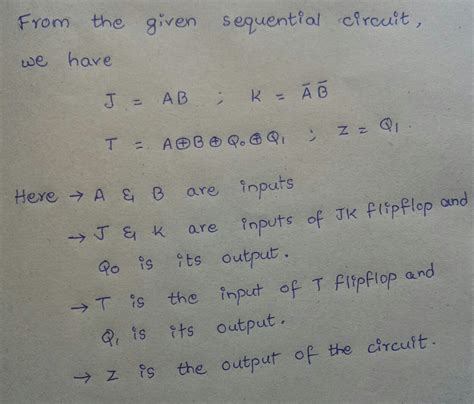 From the given sequential circuit,
we have
J = AB ; K = A̅ B̅
T = A⊕B⊕Q₀⊕Q₁ ; Z = Q₁.
Here → A & B are inputs
→ J & K are inputs of JK flipflop and
Q₀ is its output.
→ T is the input of T flipflop and
Q₁ is its output.
→ Z is the output of the circuit.